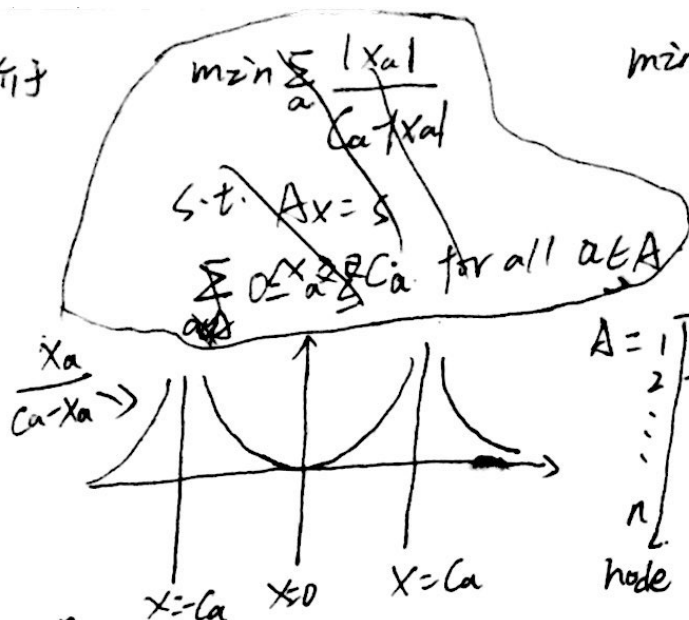 min Σ_a |Xa| / (Ca - |Xa|)
min
s.t. Ax = s
for all a∈A
Xa / (Ca - Xa)
A = 1
2
⋮
n
node
X=-Ca X=0 X=Ca